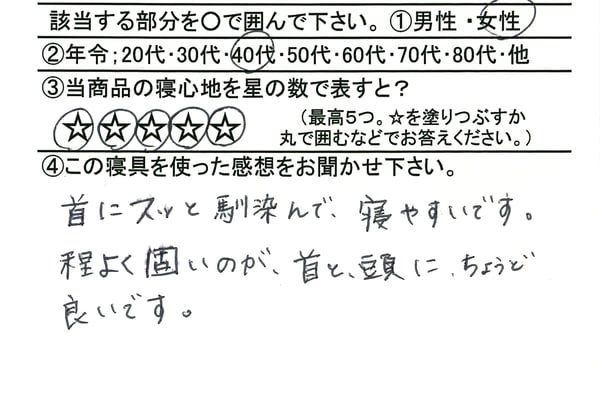 該当する部分を○で囲んで下さい。①男性・女性
②年令；20代・30代・40代・50代・60代・70代・80代・他
③当商品の寝心地を星の数で表すと？
☆☆☆☆☆
（最高5つ。☆を塗りつぶすか
丸で囲むなどでお答えください。）
④この寝具を使った感想をお聞かせ下さい。
首にスッと馴染んで、寝やすいです。
程よく固いのが、首と、頭に、ちょうど
良いです。